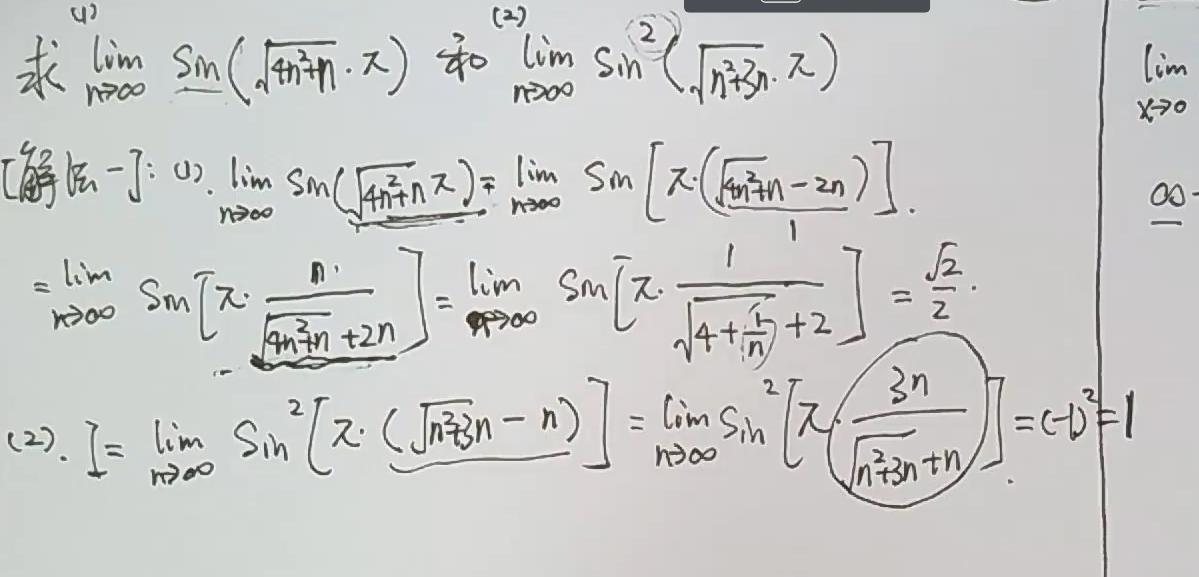 (1) (2)
求 lim n→∞ sin(√(4n²+n)·π) 和 lim n→∞ sin²(√(n²+3n)·π)
[解法一]: (1). lim n→∞ sin(√(4n²+n) π) = lim n→∞ sin[π·(√(4n²+n) − 2n)].
= lim n→∞ sin[π· n/(√(4n²+n) + 2n)] = lim n→∞ sin[π· 1/(√(4+1/n) + 2)] = √2/2.
(2). I = lim n→∞ sin²[π·(√(n²+3n) − n)] = lim n→∞ sin²[π· 3n/(√(n²+3n) + n)] = (-1)² = 1
lim x→0
∞-